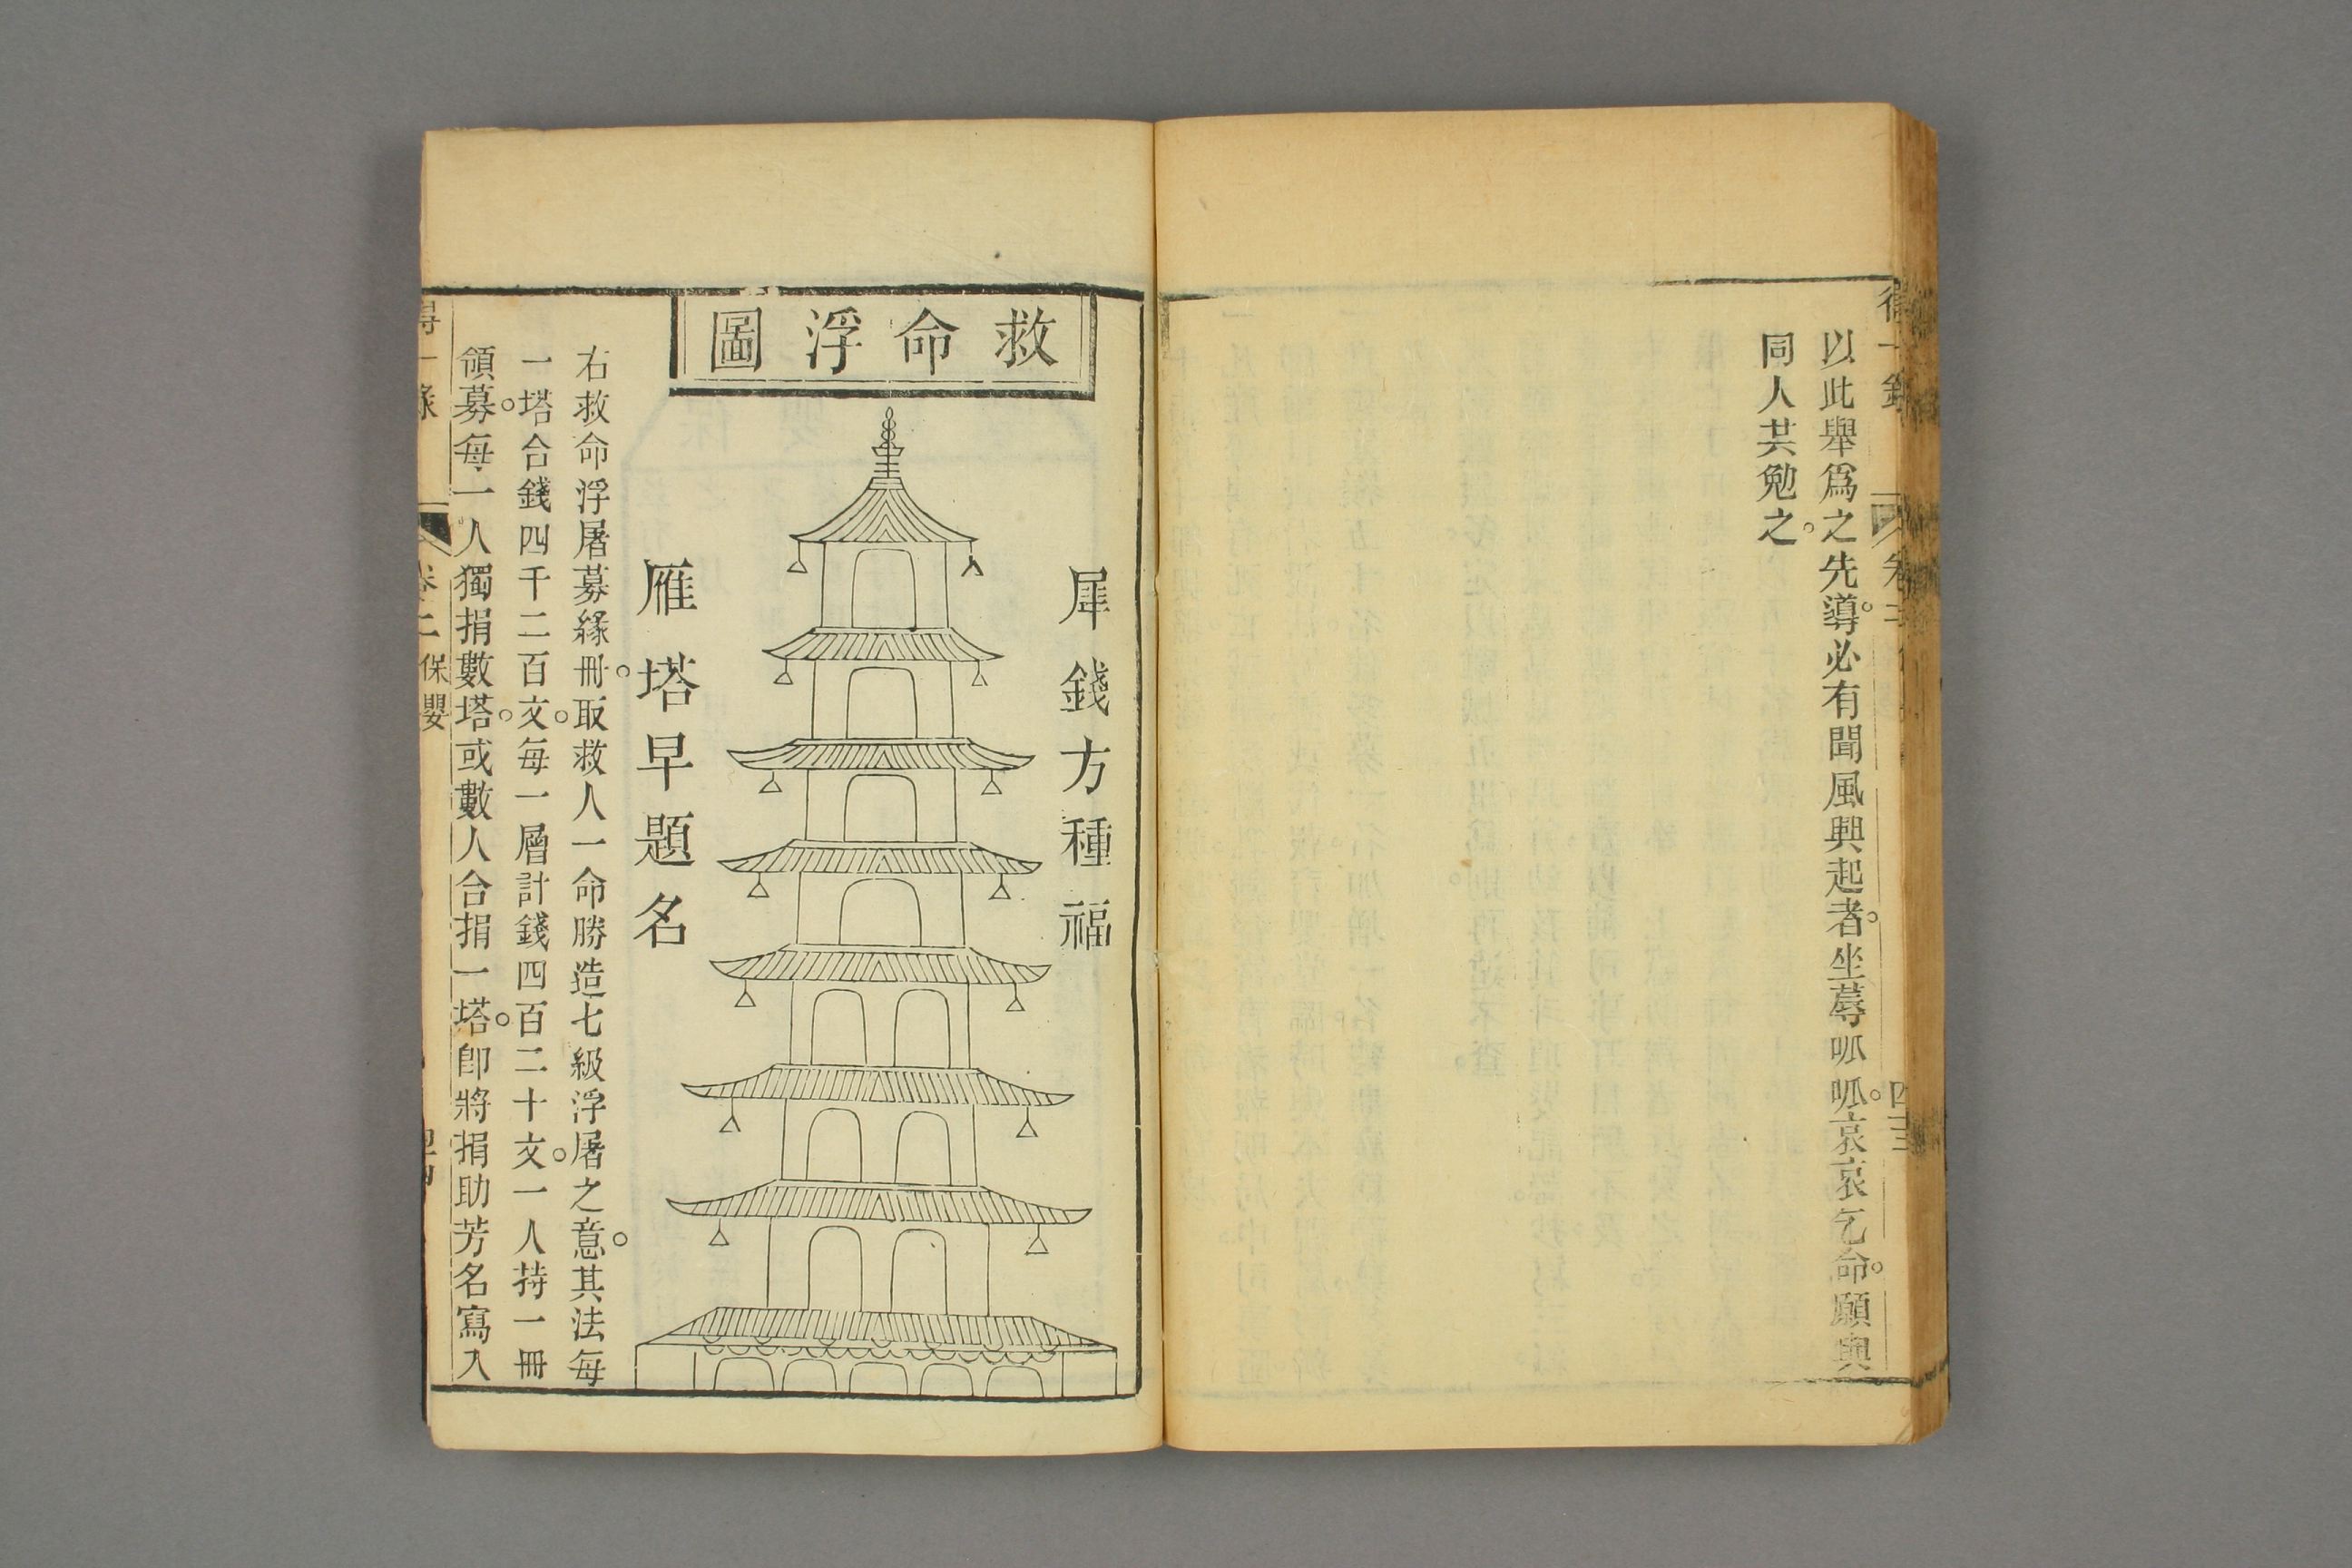 得一錄
卷二
四十三
以此舉爲之先導。必有聞風興起者。坐蓐呱呱。哀哀乞命。願與
同人共勉之。
救命浮圖
犀錢方種福
雁塔早題名
右救命浮屠募緣冊。取救人一命勝造七級浮屠之意。其法每
一塔合錢四千二百文。每一層計錢四百二十文。一人持一冊
領募。每一人獨捐數塔。或數人合捐一塔。卽將捐助芳名寫入
得一錄
卷二
保嬰